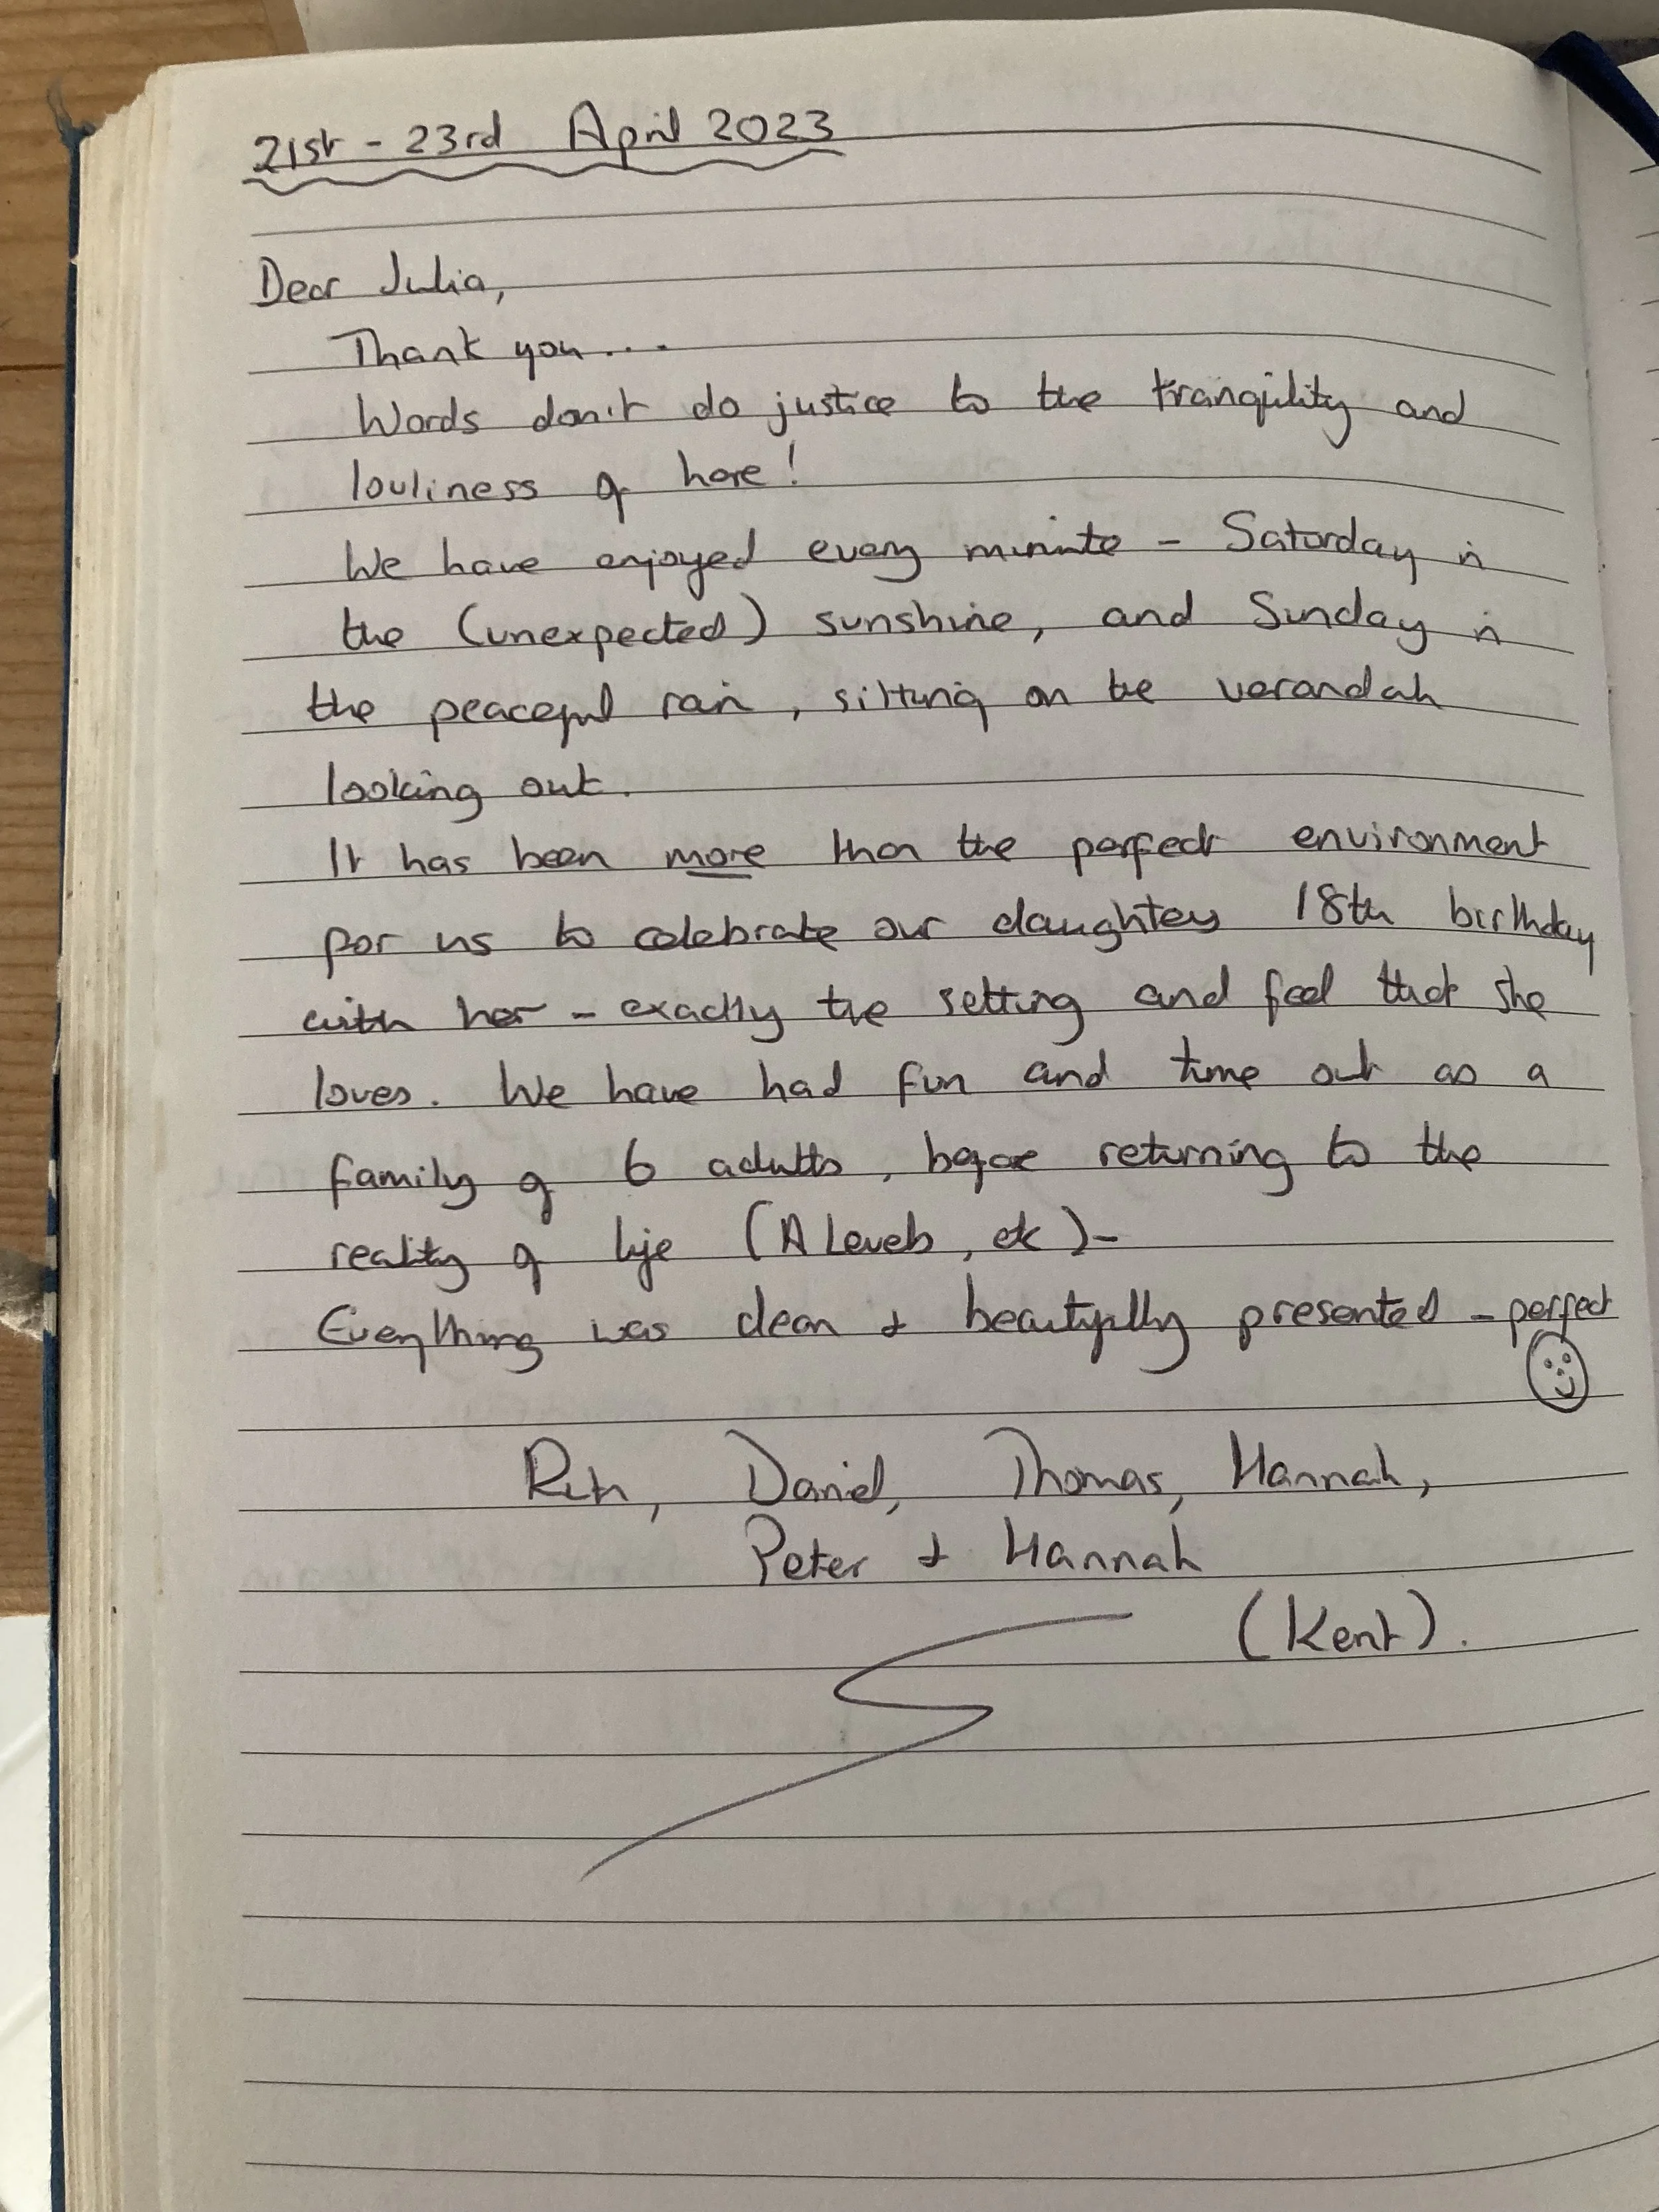 21st - 23rd April 2023
Dear Julia,
Thank you....
Words don't do justice to the tranquility and
lovliness of here!
We have enjoyed every minute - Saturday in
the (unexpected) sunshine, and Sunday in
the peaceful rain, sitting on the verandah
looking out.
It has been more than the perfect environment
for us to celebrate our daughters 18th birthday
with her - exactly the setting and feel that she
loves. We have had fun and time out as a
family of 6 adults, before returning to the
reality of life (A Levels, etc) -
Everything was clean & beautifully presented - perfect
Ruth, Daniel, Thomas, Hannah,
Peter & Hannah
(Kent).